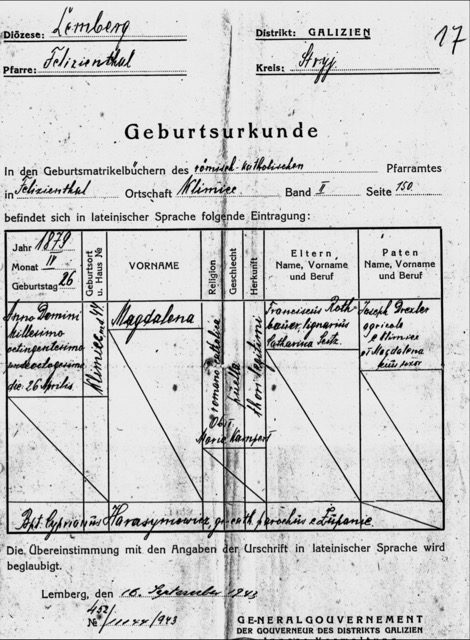 Diözese: Lemberg
Distrikt: GALIZIEN
17
Pfarre: Felizienthal
Kreis: Stryj
Geburtsurkunde
In den Geburtsmatrikelbüchern des römisch-katholischen Pfarramtes
in Felizienthal Ortschaft Klimiec Band II Seite 150
befindet sich in lateinischer Sprache folgende Eintragung:
Jahr 1879
Monat IV
Geburtstag 26
Geburtsort u. Haus №
VORNAME
Religion
Geschlecht
Herkunft
Eltern
Name, Vorname
und Beruf
Paten
Name, Vorname
und Beruf
Anno Domini
Millesimo
octingentesimo
die 26 Aprilis
Klimiec
Magdalena
romano catholica
puella
thori legitimi
Obst.
Maria
Franciscus Roth
lignarius
Catharina Seitz
Joseph Drexler
agricola
e Klimiec
et Magdalena
ejus uxor
Bapt. Cyprianus Harasymowicz gr. cath. parochus e Żupanie
Die Übereinstimmung mit den Angaben der Urschrift in lateinischer Sprache wird
beglaubigt.
Lemberg, den 16. September 1943
№
GENERALGOUVERNEMENT
DER GOUVERNEUR DES DISTRIKTS GALIZIEN